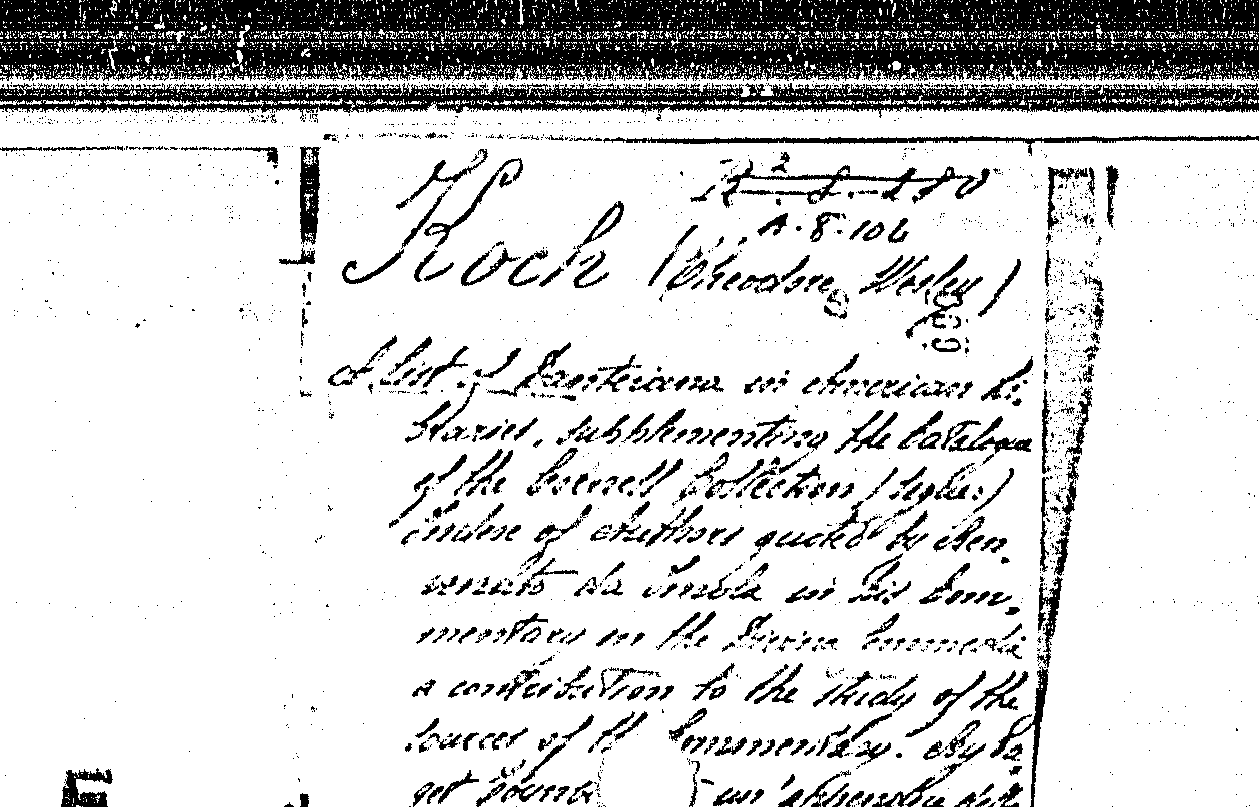 A.8.106
Koch (Theodore Wesley)
A list of Danteiana in American li-
braries, supplementing the Catalogue
of the Cornell Collection
Index of Authors quoted by Ben-
venuto da Imola in his Com-
mentary on the Divina Commedia
a contribution to the study of the
sources of the Commentary. By Pa-
get